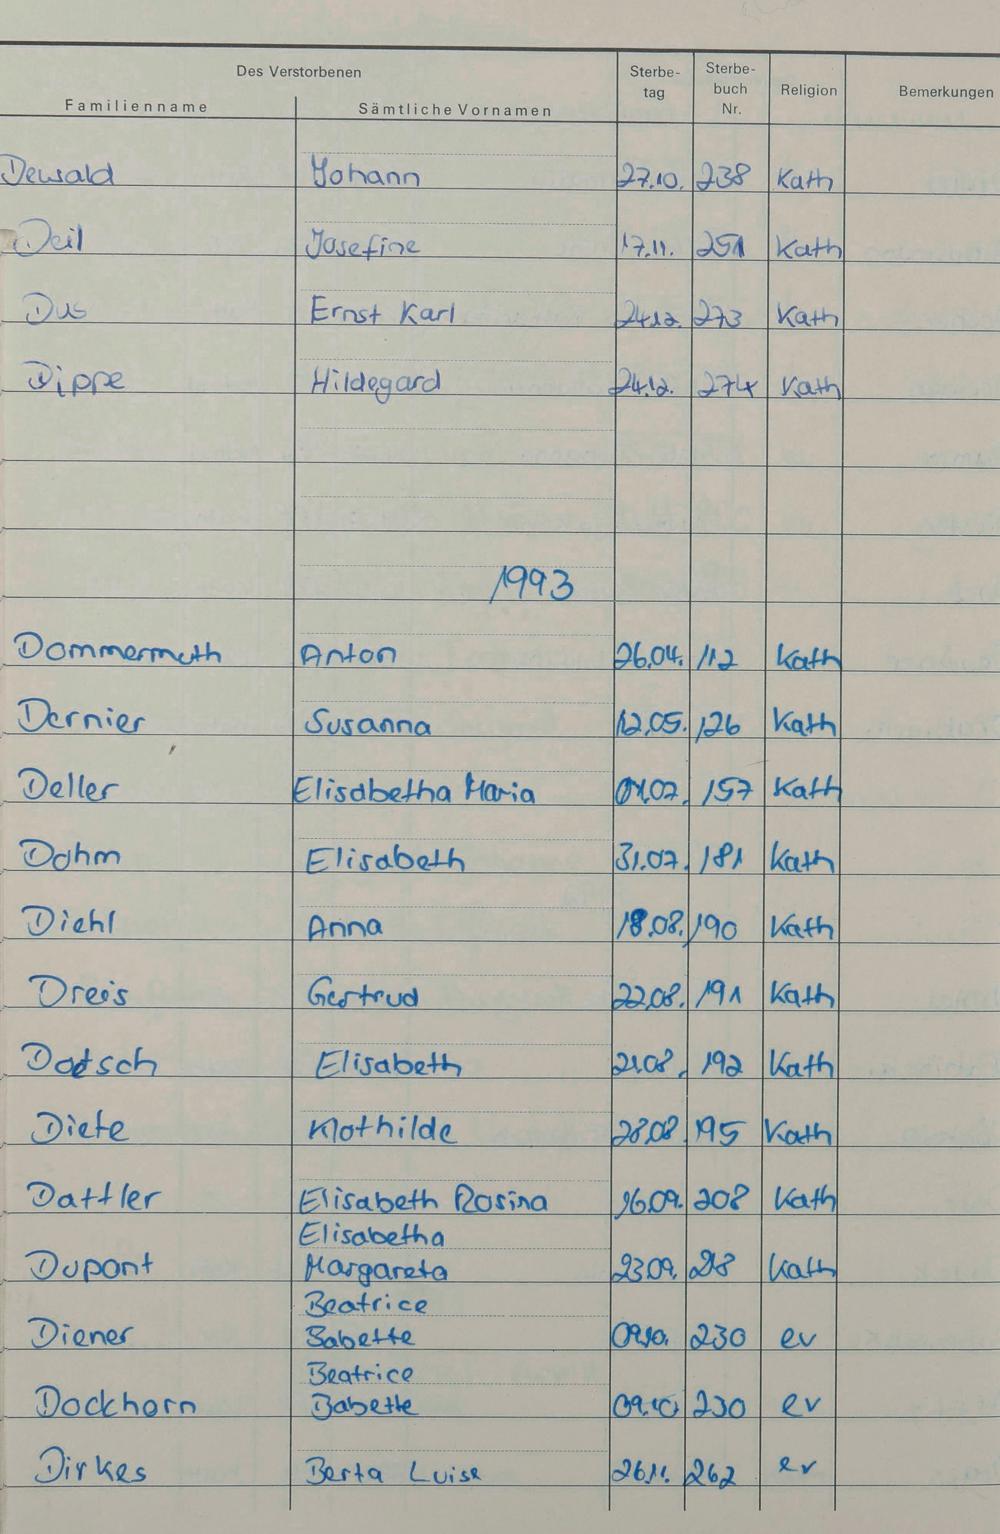 Des Verstorbenen Sterbe- Sterbe-
tag buch Religion Bemerkungen
Familienname Sämtliche Vornamen Nr.
Dewald Johann 27.10. 238 Kath
Deil Josefine 17.11. 251 Kath
Dus Ernst Karl 24.12. 273 Kath
Dippe Hildegard 24.12. 274 Kath
1993
Dommermuth Anton 26.04. 112 Kath
Dernier Susanna 12.05. 126 Kath
Deller Elisabetha Maria 01.07. 157 Kath
Dohm Elisabeth 31.07. 181 Kath
Diehl Anna 18.08. 190 Kath
Dreis Gertrud 22.08. 191 Kath
Dötsch Elisabeth 21.08. 192 Kath
Diete Klothilde 28.08. 195 Kath
Dattler Elisabeth Rosina 16.09. 208 Kath
Elisabetha
Dupont Margareta 23.09. 218 Kath
Beatrice
Diener Babette 09.10. 230 ev
Beatrice
Dockhorn Babette 09.10 230 ev
Dirkes Berta Luise 26.11. 262 ev